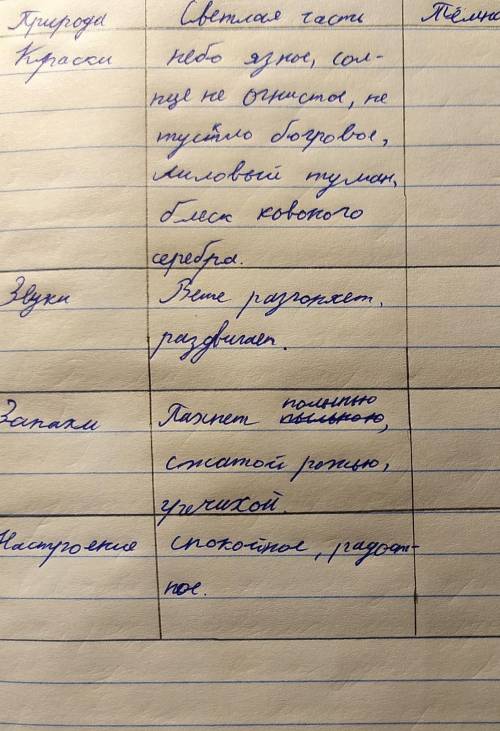 Природа Светлая часть Тёмна
Краски небо язное, сол-
нце не огнистое, не
тускло багровое,
лиловый туман,
блеск кованого
серебра.
Звуки Ветер разгоняет,
раздвигает.
Запахи Пахнет полынью,
сжатой рожью,
гречихой.
Настроение спокойное, радост-
ное.